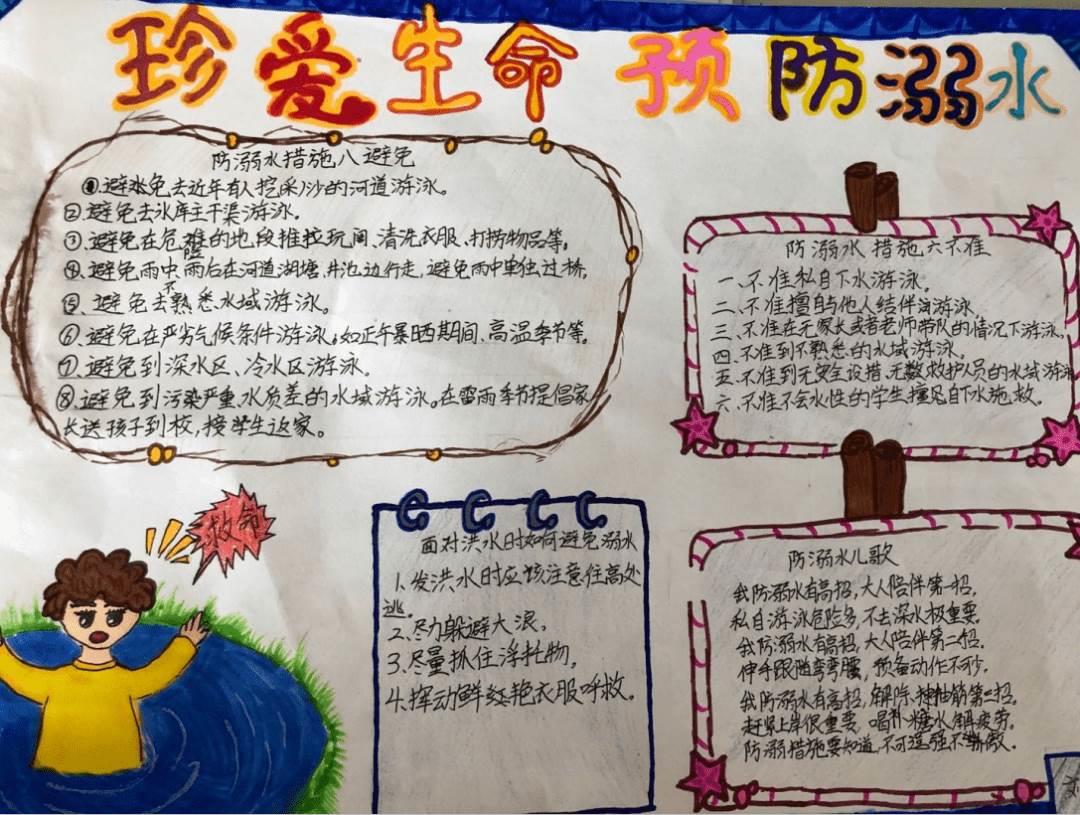 珍爱生命 预防溺水
防溺水措施八避免
①.避免去近年有人挖采沙的河道游泳。
②.避免去水库主干渠游泳。
③.避免在危险的地段推拉玩闹、清洗衣服、打捞物品等。
④.避免雨中、雨后在河道湖塘、井池边行走,避免雨中单独过桥。
⑤.避免去不熟悉水域游泳。
⑥.避免在严劣气候条件游泳,如正午暴晒期间、高温季节等。
⑦.避免到深水区、冷水区游泳。
⑧.避免到污染严重、水质差的水域游泳。在雷雨季节提倡家
长送孩子到校,接学生返家。
防溺水措施六不准
一、不准私自下水游泳。
二、不准擅自与他人结伴游泳。
三、不准在无家长或者老师带队的情况下游泳。
四、不准到不熟悉的水域游泳。
五、不准到无安全设措、无救护人员的水域游泳
六、不准不会水性的学生擅自下水施救。
救命
面对洪水时如何避免溺水
1.发洪水时应该注意住高处
逃。
2.尽力躲避大浪。
3.尽量抓住浮托物,
4.挥动鲜红艳衣服呼救。
防溺水儿歌
我防溺水有高招,大人陪伴第一招,
私自游泳危险多,不去深水极重要。
我防溺水有高招,大人陪伴第二招。
伸手踢腿弯弯腰,预备动作不可少。
我防溺水有高招,解除抽筋第三招
赶紧上岸很重要,喝补糖水解疲劳。
防溺措施要知道,不可逞强不骄傲。